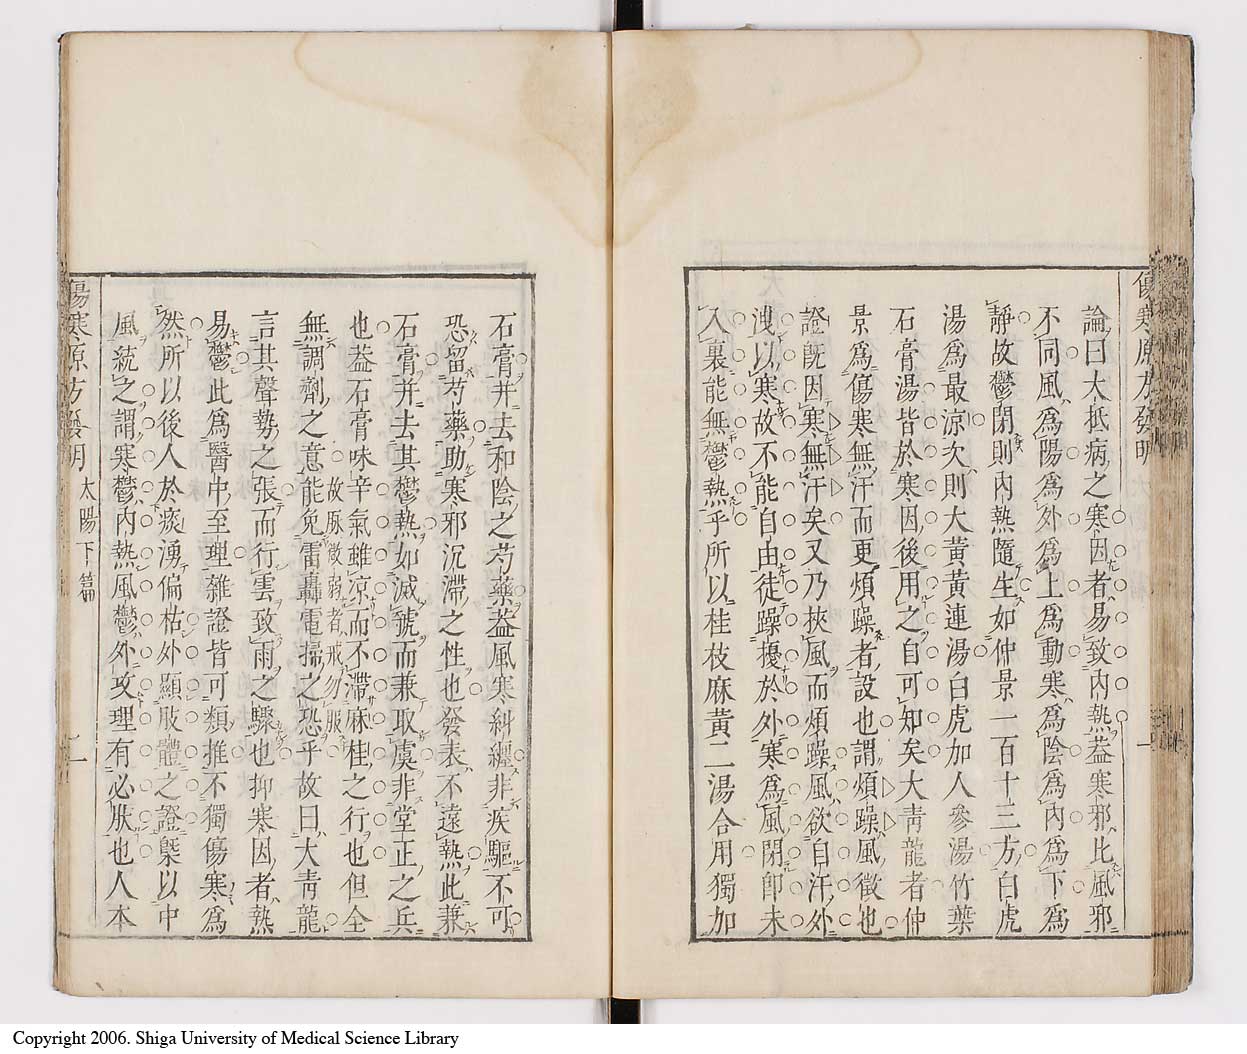 傷寒原方發明
一
論曰大抵病之寒因者易致內熱蓋寒邪比風邪
不同風爲陽爲外爲上爲動寒爲陰爲內爲下爲
靜故鬱閉則內熱隨生如仲景一百十三方白虎
湯爲最涼次則大黃黃連湯白虎加人參湯竹葉
石膏湯皆於寒因後用之自可知矣大靑龍者仲
景爲傷寒無汗而更煩躁者設也謂煩躁風徵也
證旣因寒無汗矣又乃挾風而煩躁風欲自汗外
洩以寒故不能自由徒躁擾於外寒爲風閉卽未
入裏能無鬱熱乎所以桂枝麻黃二湯合用獨加
石膏并去和陰之芍藥蓋風寒糾纏非疾驅不可
恐留芍藥助寒邪沉滯之性也發表不遠熱此兼
石膏并去其鬱熱如滅虢而兼取虞非堂正之兵
也葢石膏味辛氣雖涼而不滯麻桂之行也但全
無調劑之意故脈微弱者戒勿服能免雷轟電掃之恐乎故曰大靑龍
言其聲勢之張而行雲致雨之驟也抑寒因者熱
易鬱此爲醫中至理雜證皆可類推不獨傷寒爲
然所以後人於痰湧偏枯外顯肢體之證槩以中
風統之謂寒鬱內熱風鬱外攻理有必肰也人本
傷寒原方發明 太陽下篇 一
Copyright 2006. Shiga University of Medical Science Library